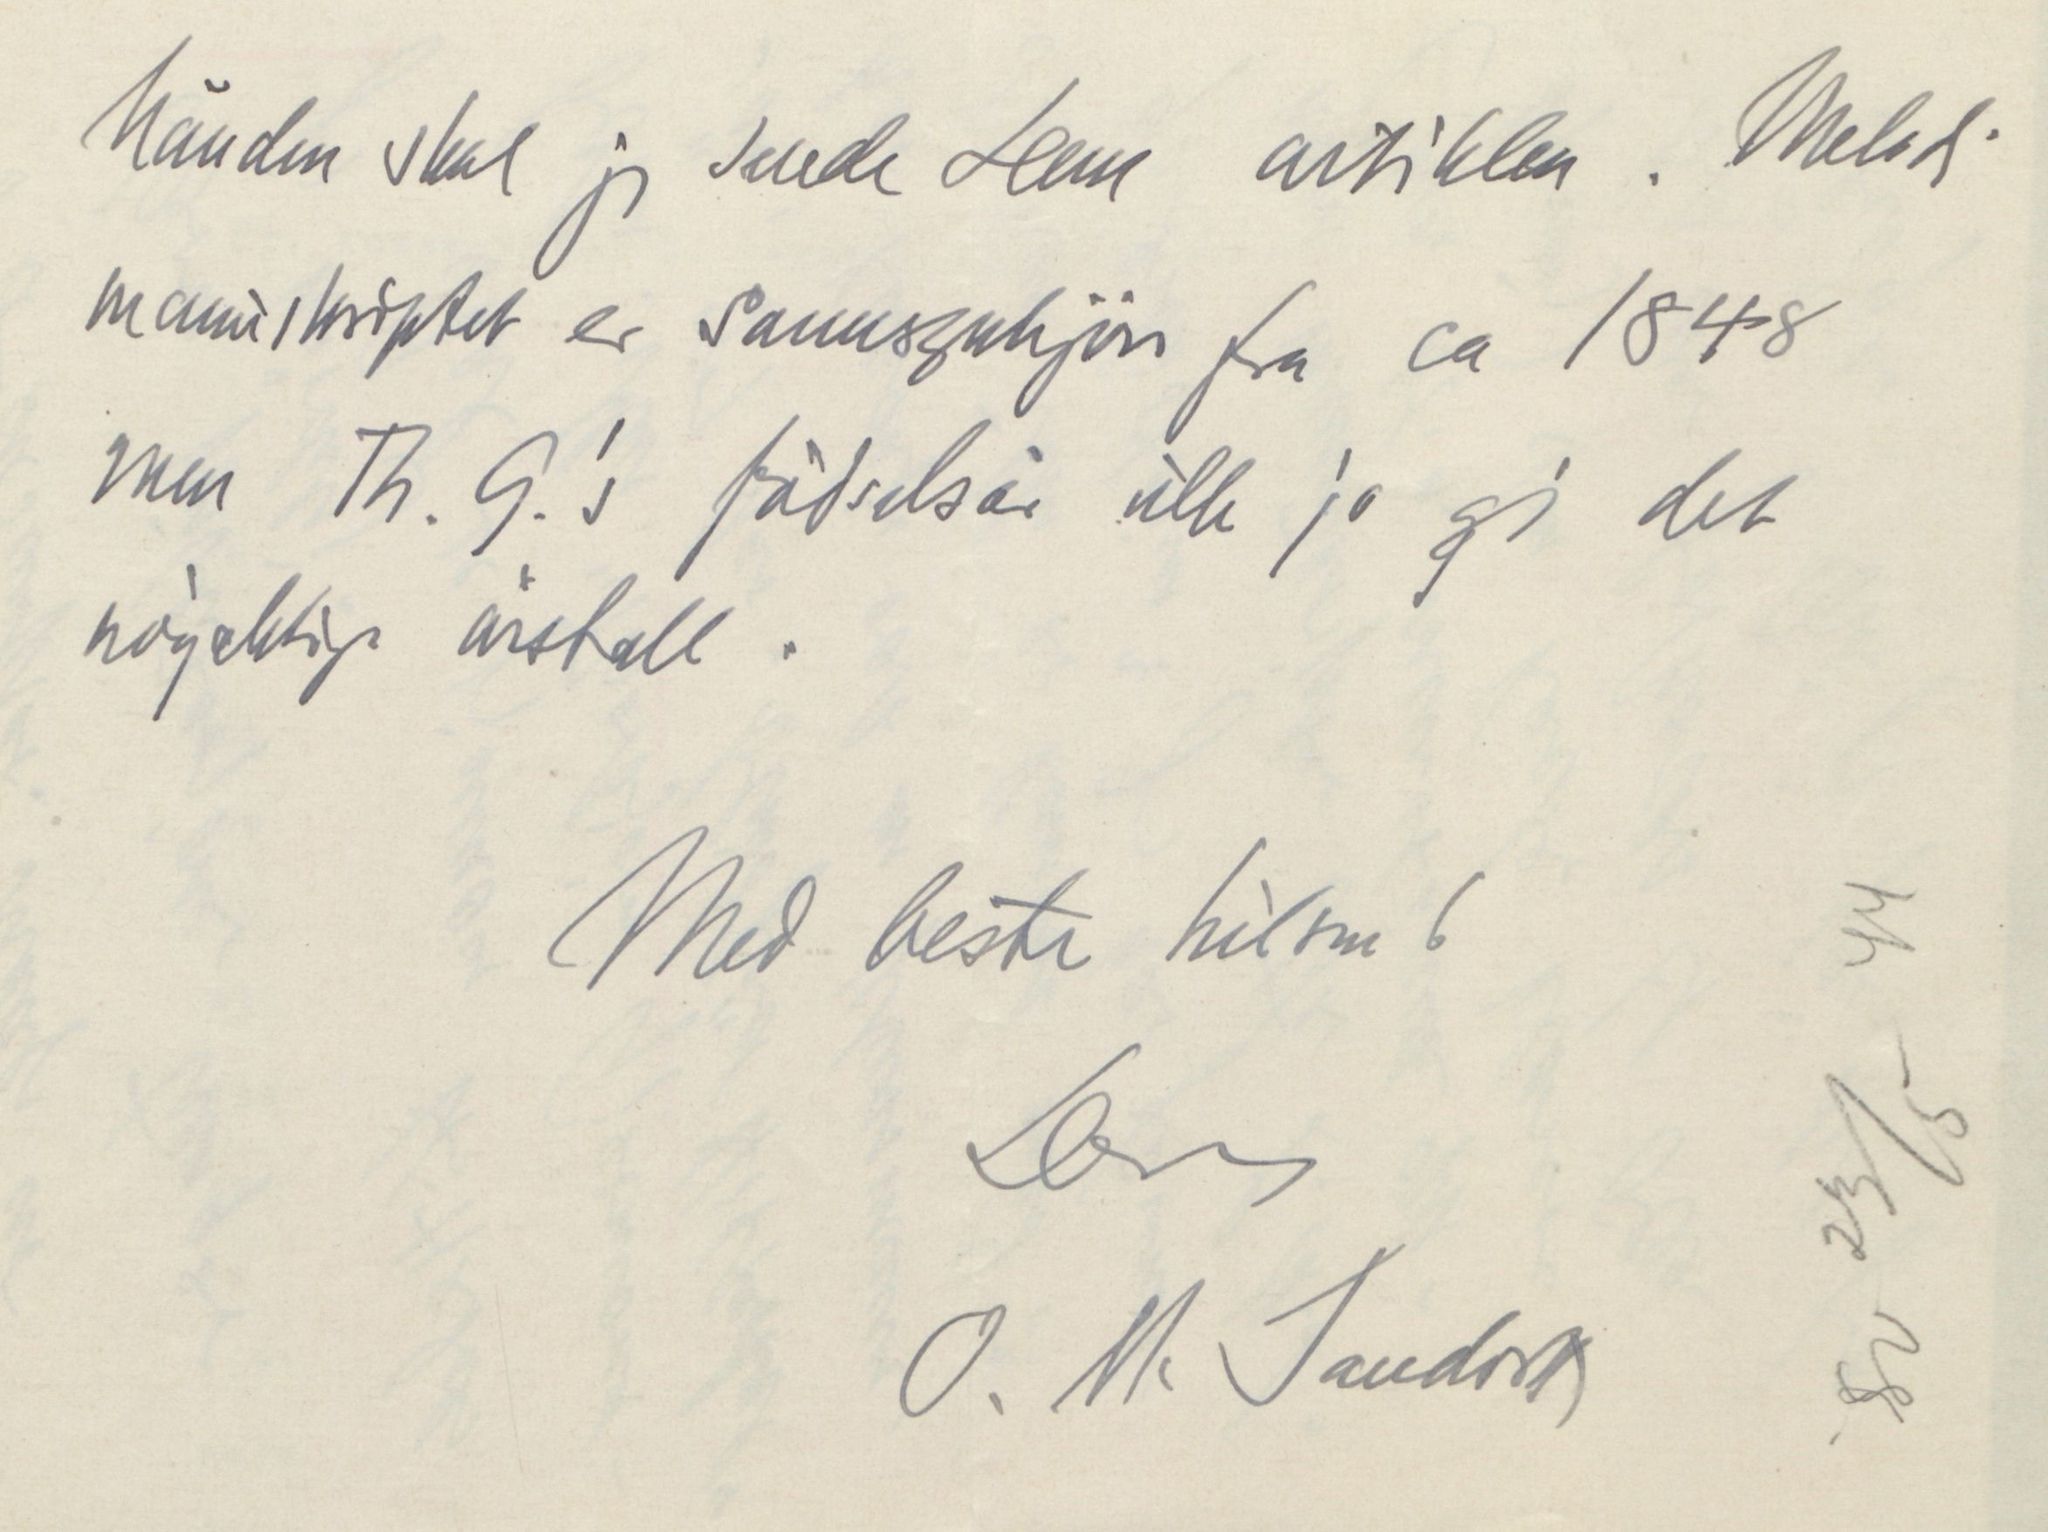 hånden skal jeg sende Dem artiklen. Melodi-
manuskriptet er sannsynligvis fra ca 1848
men Th. G.'s födselsår vilde jo gi det
nöyaktige årstall.
Med beste hilsen
Deres
O. M. Sandvik
23/5 44